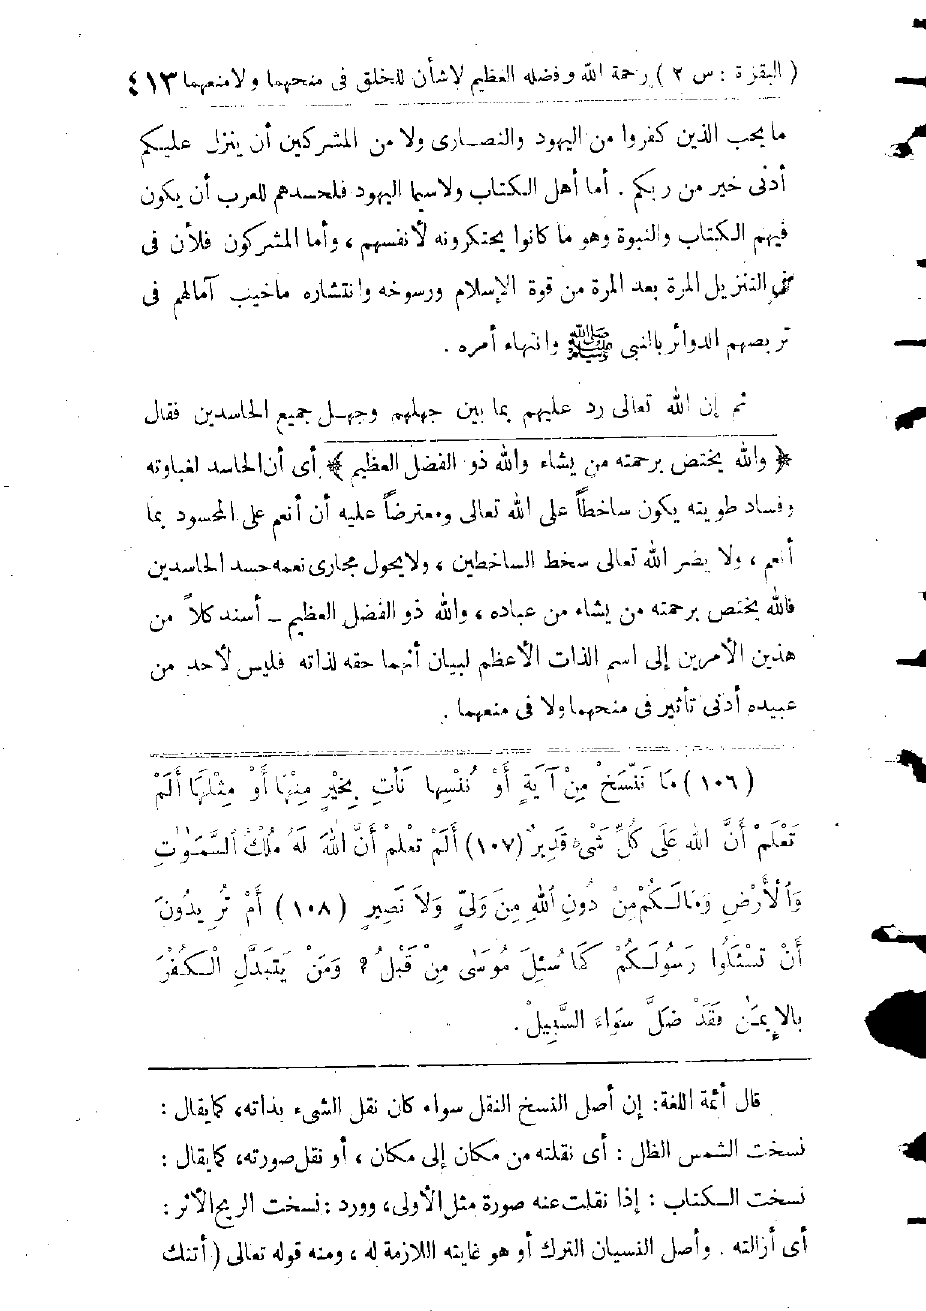 ( البقرة : س ٢ ) رحمة الله وفضله العظيم لاشأن للخلق فى منحهما ولا منعهما ٤١٣
ما يحب الذين كفروا من اليهود والنصارى ولا من المشركين أن ينزل عليكم
أدنى خير من ربكم . أما أهل الكتاب ولاسيما اليهود فلحسدهم للعرب أن يكون
فيهم الكتاب والنبوة وهو ما كانوا يحتكرونه لأنفسهم ، وأما المشركون فلأن فى
التنزيل المرة بعد المرة من قوة الإسلام ورسوخه وانتشاره ماخيب آمالهم فى
تربصهم الدوائر بالنبى ﷺ وانتهاء أمره .
ثم إن الله تعالى رد عليهم بما بين جهلهم وجهل جميع الحاسدين فقال
﴿ والله يختص برحمته من يشاء والله ذو الفضل العظيم ﴾ أى أن الحاسد لغباوته
وفساد طويته يكون ساخطاً على الله تعالى ومعترضاً عليه أن أنعم على المحسود بما
أنعم ، ولا يضر الله تعالى سخط الساخطين ، ولايحول مجارى نعمه حسد الحاسدين
فالله يختص برحمته من يشاء من عباده ، والله ذو الفضل العظيم ــ أسند كلاً من
هذين الأمرين إلى اسم الذات الأعظم لبيان أنهما حقه لذاته فليس لأحد من
عبيده أدنى تأثير فى منحهما ولا فى منعهما .
(١٠٦) مَا نَنْسَخْ مِنْ آيَةٍ أَوْ نُنْسِهَا نَأْتِ بِخَيْرٍ مِنْهَا أَوْ مِثْلِهَا أَلَمْ
تَعْلَمْ أَنَّ اللهَ عَلَى كُلِّ شَىْءٍ قَدِيرٌ (١٠٧) أَلَمْ تَعْلَمْ أَنَّ اللهَ لَهُ مُلْكُ ٱلسَّمَـٰوَٰتِ
وَٱلْأَرْضِ وَمَالَـكُمْ مِنْ دُونِ ٱللهِ مِنَ وَلِيٍّ وَلاَ نَصِيرٍ (١٠٨) أَمْ تُرِيدُونَ
أَنْ تَسْئَلُوا رَسُولَـكُمْ كَمَا سُئِلَ مُوسَى مِنْ قَبْلُ ؟ وَمَنْ يَتَبَدَّلِ الْـكُفْرَ
بِالإِيمَـٰنِ فَقَدْ ضَلَّ سَوَاءَ السَّبِيلِ .
قال أئمة اللغة : إن أصل النسخ النقل سواء كان نقل الشىء بذاته ، كما يقال :
نسخت الشمس الظل : أى نقلته من مكان إلى مكان ، أو نقل صورته ، كما يقال :
نسخت الـكتاب : إذا نقلت عنه صورة مثل الأولى ، وورد : نسخت الريح الأثر :
أى أزالته . وأصل النسيان الترك أو هو غايته اللازمة له ، ومنه قوله تعالى ( أتتك